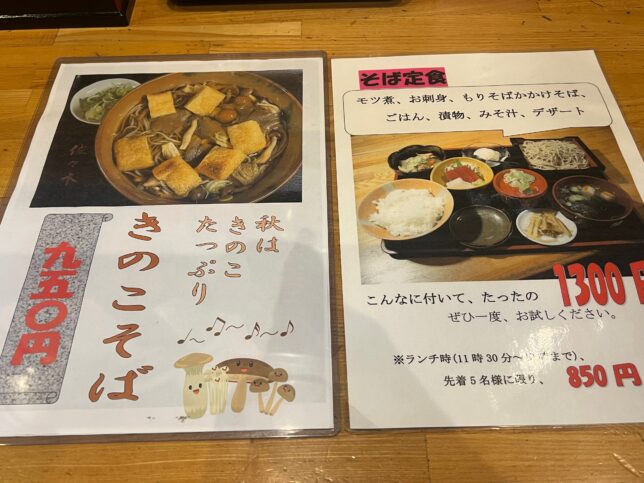 佐々木
秋は
きのこ
たっぷり
きのこそば
九五〇円
そば定食
モツ煮、お刺身、もりそばかかけそば、
ごはん、漬物、みそ汁、デザート
こんなに付いて、たったの 1300 円
ぜひ一度、お試しください。
※ランチ時(11時30分～ まで)、
先着5名様に限り、 850 円